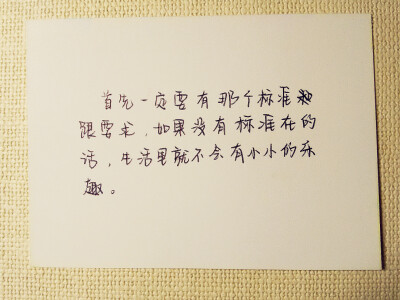 首先一定要有那个标准
跟要求，如果没有标准在的
话，生活里就不会有小小的乐
趣。